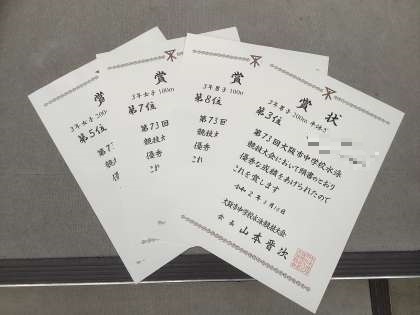 賞
3年女子 200m
第5位
第7
競技
賞
3年女子 100m
第7位
第73回
競技大
優秀
こ
賞
3年男子 100m
第8位
第73回
競技大
優秀
これ
賞状
3年男子 200m 平泳ぎ
第3位
第73回大阪市中学校水泳
競技大会において頭書のとおり
優秀な成績をあげられたので
これを賞します
大阪市中学校水泳競技大会
会長 山本晋次